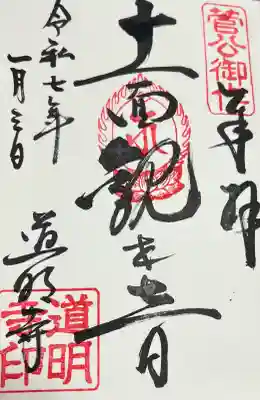 菅公御作
奉拝
十一面観世音
令和七年
一月三日
道明寺
道明
寺印